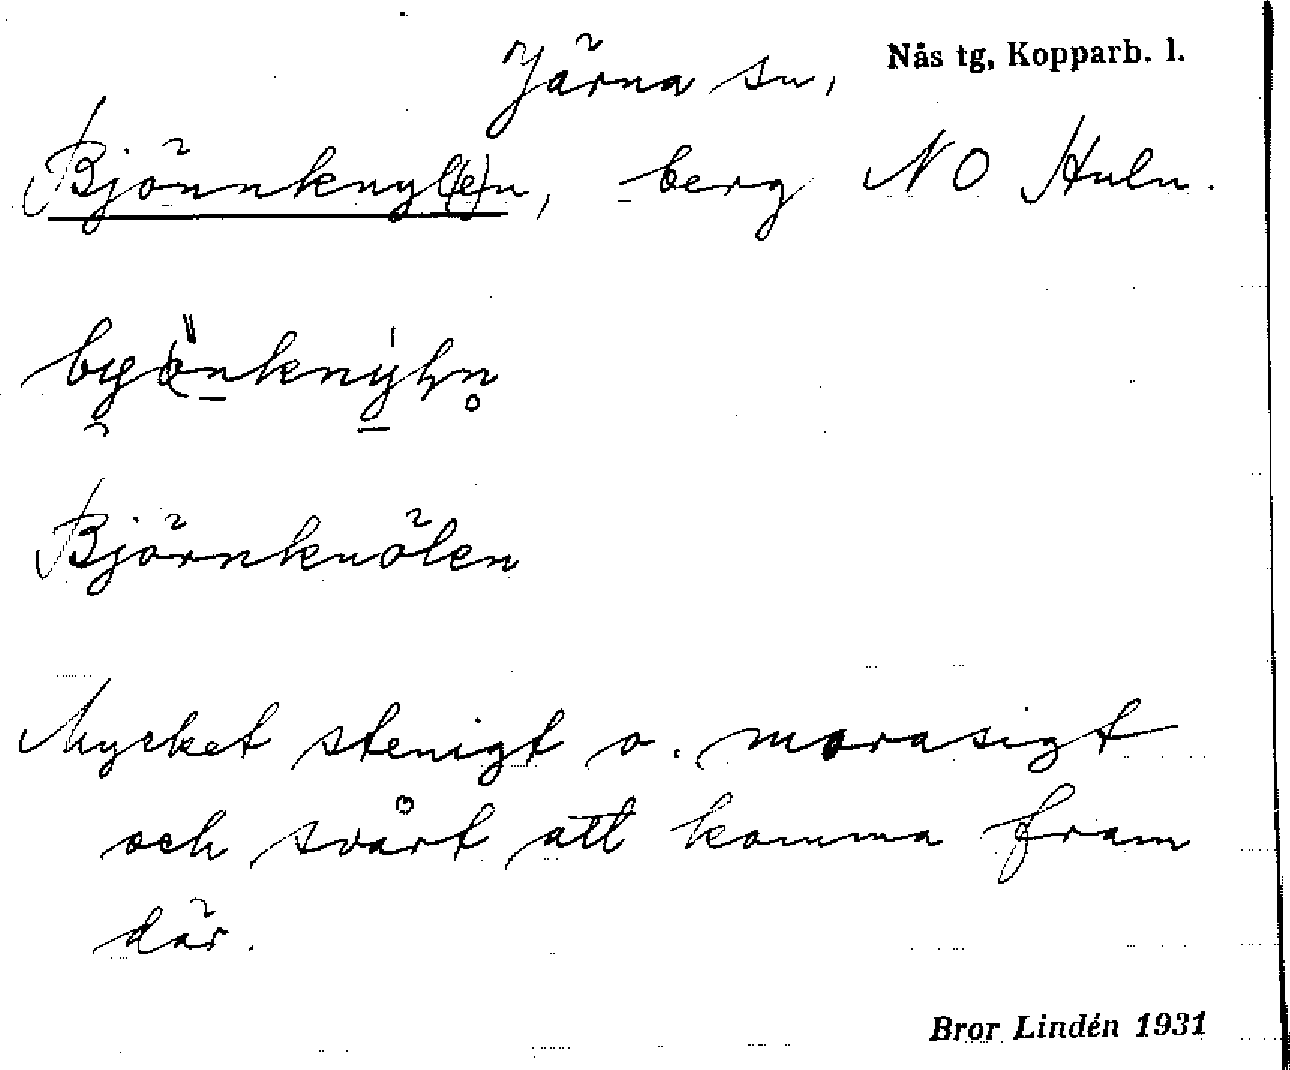 Järna sn, Nås tg, Kopparb. l.
Björnknyl(e)n, berg NO Huln.
Björnknölen
Mycket stenigt o. morasigt
och svårt att komma fram
där.
Bror Lindén 1931